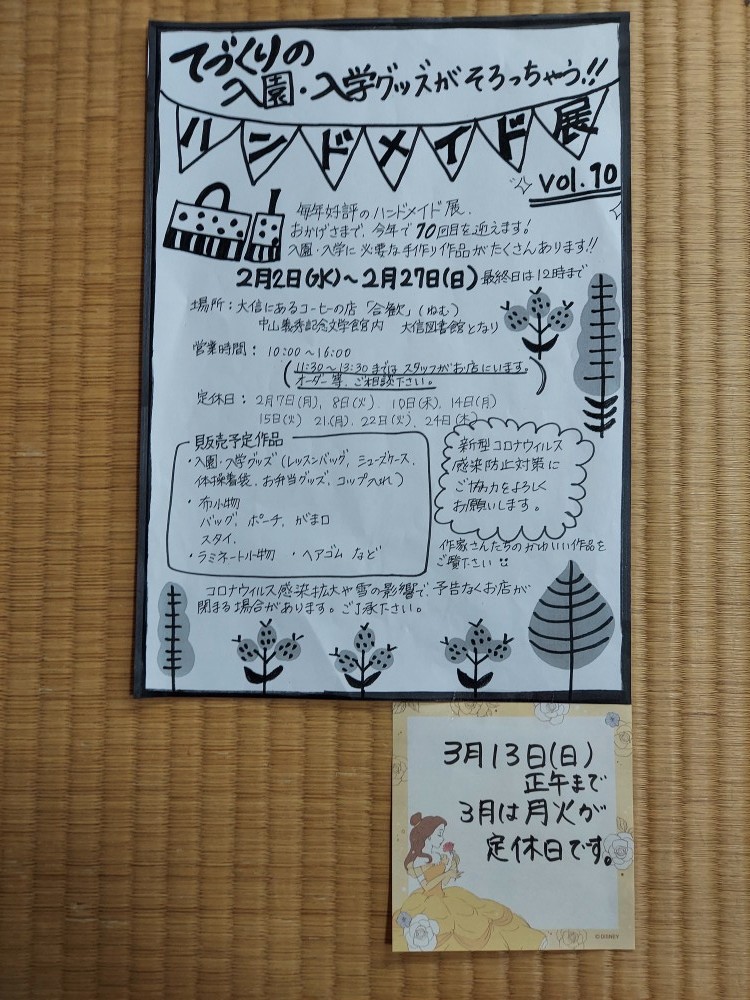 てづくりの
入園・入学グッズがそろっちゃう!!
ハンドメイド展
vol.10
毎年好評のハンドメイド展、
おかげさまで、今年で10回目を迎えます!
入園・入学に必要な手作り作品がたくさんあります!!
2月2日(水)~2月27日(日)最終日は12時まで
場所:大信にあるコーヒーの店「合歓」(ねむ)
中山義秀記念文学館内 大信図書館となり
営業時間: 10:00~16:00
(11:30~13:30まではスタッフがお店にいます。
オーダー等、ご相談下さい。)
定休日:2月7日(月), 8日(火), 10日(木), 14日(月)
15日(火) 21(月), 22日(火), 24日(木)
販売予定作品
・入園・入学グッズ(レッスンバッグ, シューズケース,
体操着袋, お弁当グッズ, コップ入れ)
・布小物
バッグ, ポーチ, がま口
スタイ,
・ラミネート小物 ・ヘアゴム など
新型コロナウィルス
感染防止対策に
ご協力をよろしく
お願いします。
作家さんたちのかわいい作品を
ご覧下さい
コロナウィルス感染拡大や雪の影響で、予告なくお店が
閉まる場合があります。ご了承下さい。
3月13日(日)
正午まで
3月は月火が
定休日です。
©DISNEY